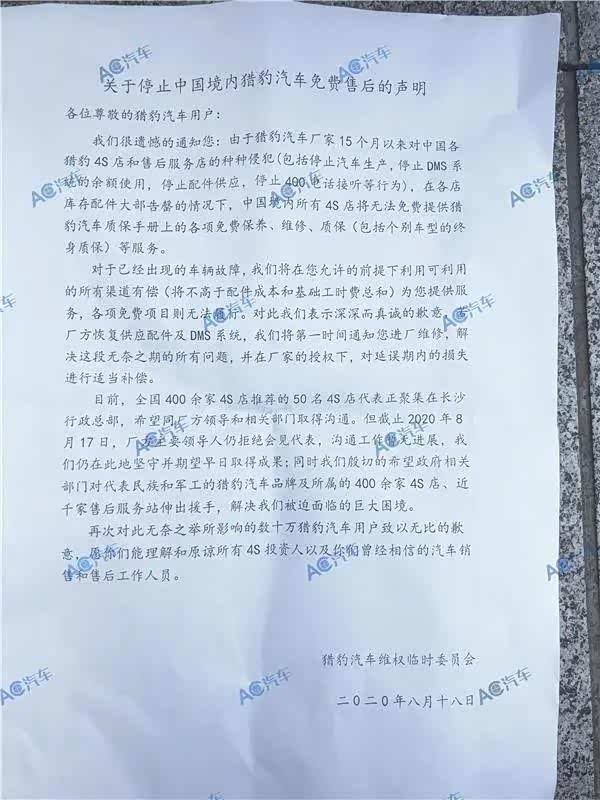 关于停止中国境内猎豹汽车免费售后的声明
各位尊敬的猎豹汽车用户：
我们很遗憾的通知您：由于猎豹汽车厂家15个月以来对中国各
猎豹4S店和售后服务店的种种侵犯(包括停止汽车生产，停止DMS系
统的余额使用，停止配件供应，停止400电话接听等行为)，在各店
库存配件大部告罄的情况下，中国境内所有4S店将无法免费提供猎
豹汽车质保手册上的各项免费保养、维修、质保（包括个别车型的终
身质保）等服务。
对于已经出现的车辆故障，我们将在您允许的前提下利用可利用
的所有渠道有偿（将不高于配件成本和基础工时费总和）为您提供服
务，各项免费项目则无法履行。对此我们表示深深而真诚的歉意，若
厂方恢复供应配件及DMS系统，我们将第一时间通知您进厂维修，解
决这段无奈之期的所有问题，并在厂家的授权下，对延误期内的损失
进行适当补偿。
目前，全国400余家4S店推荐的50名4S店代表正聚集在长沙
行政总部，希望同厂方领导和相关部门取得沟通。但截止2020年8
月17日，厂方主要领导人仍拒绝会见代表，沟通工作暂无进展，我
们仍在此地坚守并期望早日取得成果；同时我们殷切的希望政府相关
部门对代表民族和军工的猎豹汽车品牌及所属的400余家4S店、近
千家售后服务站伸出援手，解决我们被迫面临的巨大困境。
再次对此无奈之举所影响的数十万猎豹汽车用户致以无比的歉
意，愿你们能理解和原谅所有4S投资人以及你们曾经相信的汽车销
售和售后工作人员。
猎豹汽车维权临时委员会
二〇二〇年八月十八日
AC汽车